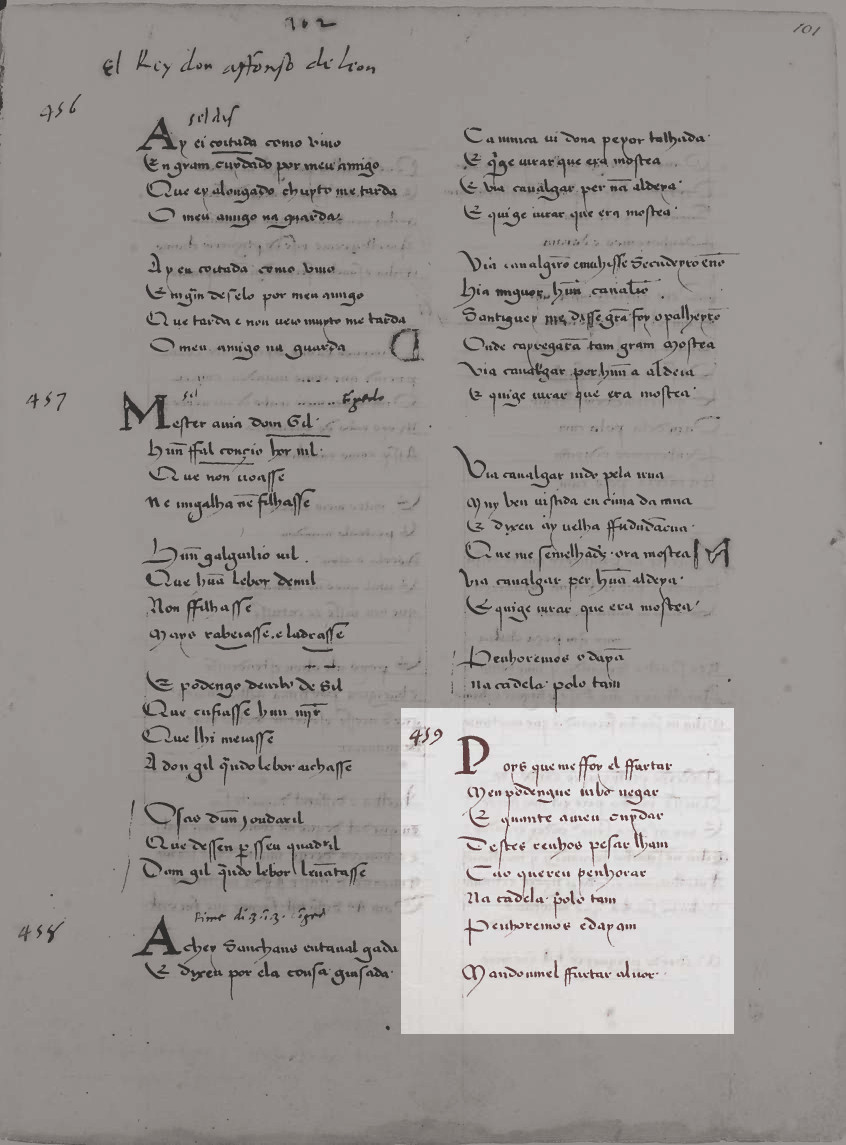 702
101
El Rey don Affonso de Leon
456
Ay ei coitada como viuo
En gram cuydado por meu amigo
Que ey alongado muyto me tarda
O meu amigo na guarda
Ay eu coitada como viuo
En gram deseio por meu amigo
Que tarda e non veio muyto me tarda
O meu amigo na guarda
457
Mester auia dom Gil
Hun̄ ffal conçio bor nil
Que non uoasse
Ne migalha nē filhasse
Hun̄ galguilio uil
Que hūa lebor demil
Non ffilhasse
Mays rabeiasse e ladrasse
E podengo de Sil
Que cusiasse huu
Que lhi meiasse
A don gil q̄ndo lebor achasse
Osas dun̄ Joudaril
Que dessen p̱ sseu quadril
Dom gil q̄ndo lebor leuātasse
458
Achey Sanchans encaualgada
E dixeu por ela cousa guisada
Ca nunca ui dona peyor talhada
E q̄ge iurar que era mostea
E via caualgar per nā aldeya
E quige iurar que era mostea
Via caualgar cō Secudeyro
Hia hūu caualō
Santiguey me disse grā foy o palheyro
Onde caregarā tam gram mostea
Via caualgar por hūa aldeia
E quige iurar que era mostea
Via caualgar indo pela rua
Muy ben uistida en cima da mua
E dixeu ay uelha ffududācua
Que me semelhadꝫ ora mostea
Via caualgar per hūa aldeya
E quige iurar que era mostea
Penhoremos o dayā
na cadela polo tam
459
Poys que meffor el ffurtar
Meu podengue mho negar
E quante ameu cuydar
Destes penhos pesar lham
Cao quereu penhorar
Na cadela polo tam
Penhoremos edayam
Mandoumel ffurtar aluor